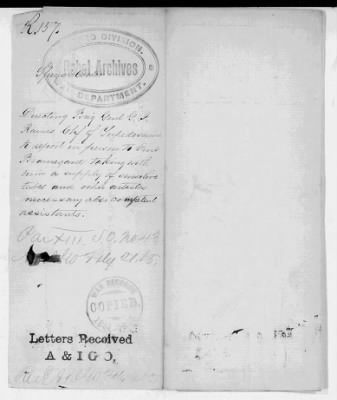 R 157.
RECORD DIVISION.
Rebel Archives
WAR DEPARTMENT.
Special Orders
Directing Brig Genl G. J.
Raines Chf of Torpedo
to report in person to Genl
Beauregard taking with
him a supply of sensitive
tubes and other articles
necessary also competent
assistants.
Par XIII S.O. No 43
Feby 21. 65.
WAR RECORDS
COPIED
Letters Received
A & I G O,